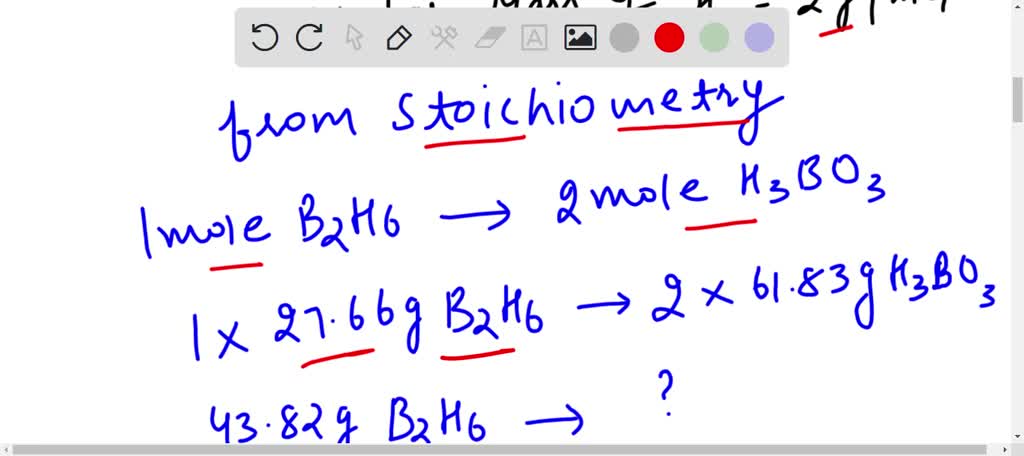 from Stoichiometry
1 mole B2H6 → 2 mole H3BO3
1 × 27.66g B2H6 → 2 × 61.83g H3BO3
43.82g B2H6 → ?